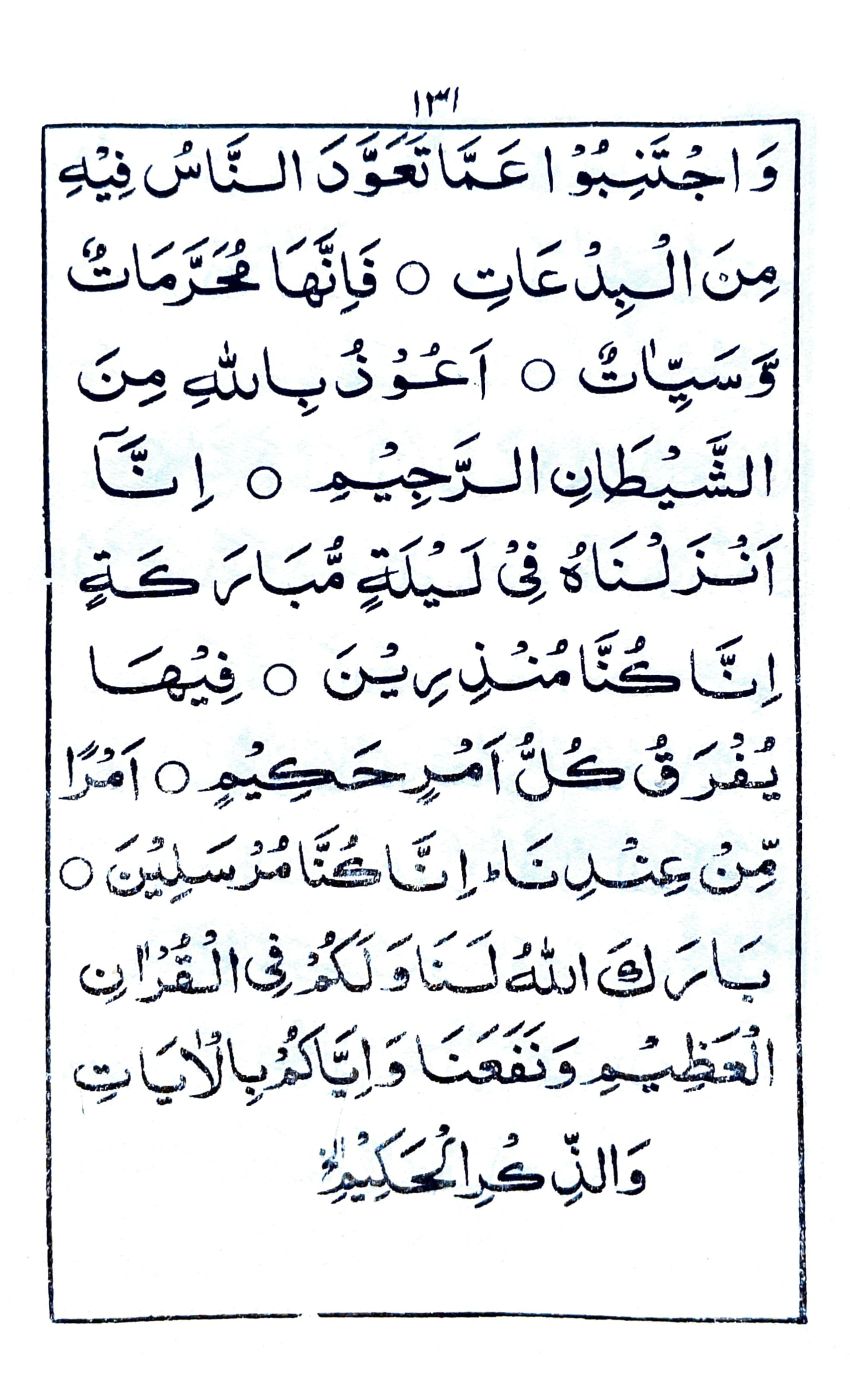 ۱۳۱
وَاجْتَنِبُوْا عَمَّا تَعَوَّدَ النَّاسُ فِيْهِ
مِنَ الْبِدْعَاتِ ○ فَاِنَّهَا مُحَرَّمَاتٌ
وَّسَيِّاٰتٌ ○ اَعُوْذُ بِاللّٰهِ مِنَ
الشَّيْطَانِ الرَّجِيْمِ ○ اِنَّآ
اَنْزَلْنَاهُ فِىْ لَيْلَةٍ مُّبَارَكَةٍ
اِنَّا كُنَّا مُنْذِرِيْنَ ○ فِيْهَا
يُفْرَقُ كُلُّ اَمْرٍ حَكِيْمٍ ○ اَمْرًا
مِّنْ عِنْدِنَا ؕ اِنَّا كُنَّا مُرْسَلِيْنَ ○
بَارَكَ اللّٰهُ لَنَا وَلَكُمْ فِى الْقُرْاٰنِ
الْعَظِيْمِ وَنَفَعَنَا وَاِيَّاكُمْ بِالْاٰيَاتِ
وَالذِّكْرِ الْحَكِيْمِ الخ